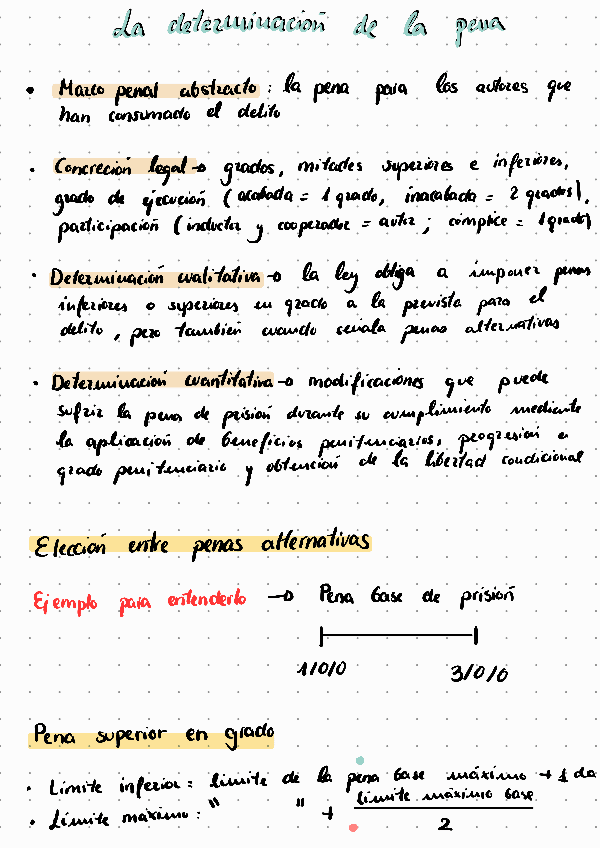 La determinación de la pena
• Marco penal abstracto : la pena para los autores que
han consumado el delito
• Concreción legal → grados, mitades superiores e inferiores,
grado de ejecución (acabada = 1 grado, inacabada = 2 grados),
participación (inductor y cooperador = autor ; cómplice = 1 grado)
• Determinación cualitativa → la ley obliga a imponer penas
inferiores o superiores en grado a la prevista para el
delito, pero también cuando señala penas alternativas
• Determinación cuantitativa → modificaciones que puede
sufrir la pena de prisión durante su cumplimiento mediante
la aplicación de beneficios penitenciarios, progresión a
grado penitenciario y obtención de la libertad condicional
Elección entre penas alternativas
Ejemplo para entenderlo → Pena base de prisión
1/0/0 3/0/0
Pena superior en grado
• Límite inferior : límite de la pena base máximo + 1 día
• Límite máximo : " " + límite máximo base
2